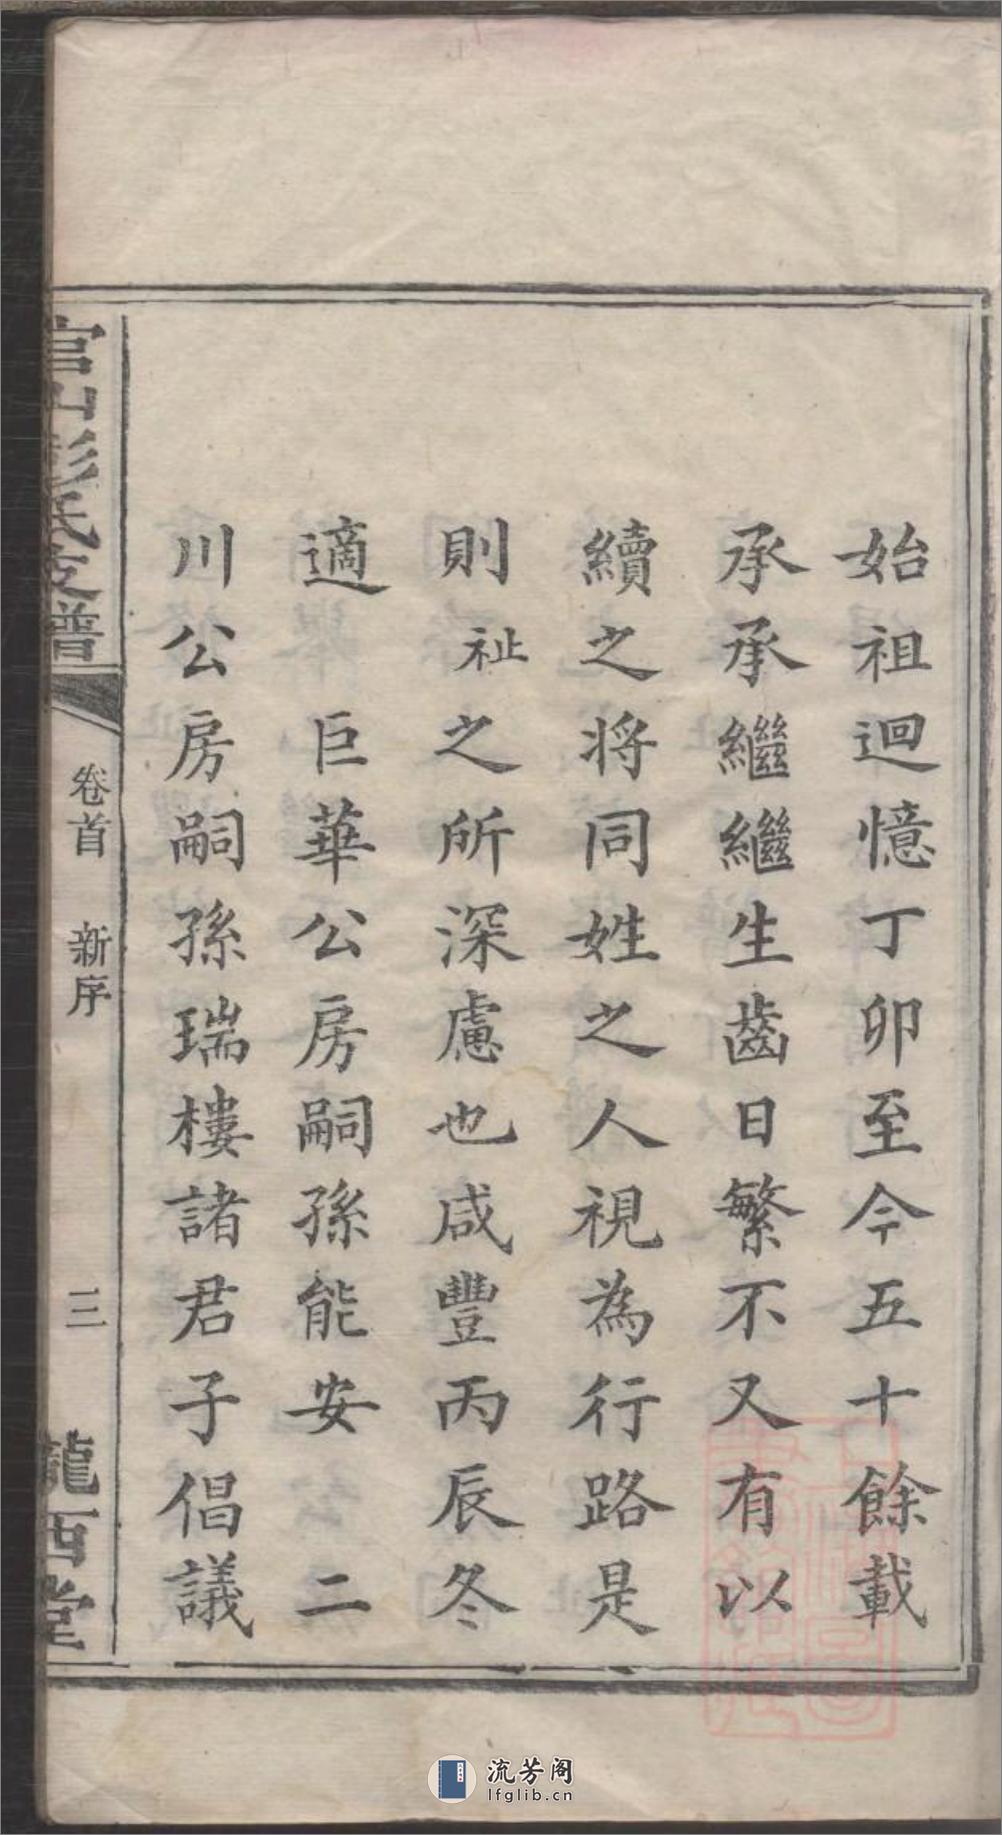 始祖迴憶丁卯至今五十餘載
承承繼繼生齒日繁不又有以
續之將同姓之人視為行路是
則祉之所深慮也咸豐丙辰冬
適巨華公房嗣孫能安二
川公房嗣孫瑞樓諸君子倡議
官山彭氏支譜
卷首 新序
三
龍西堂
流芳阁
lfglib.cn